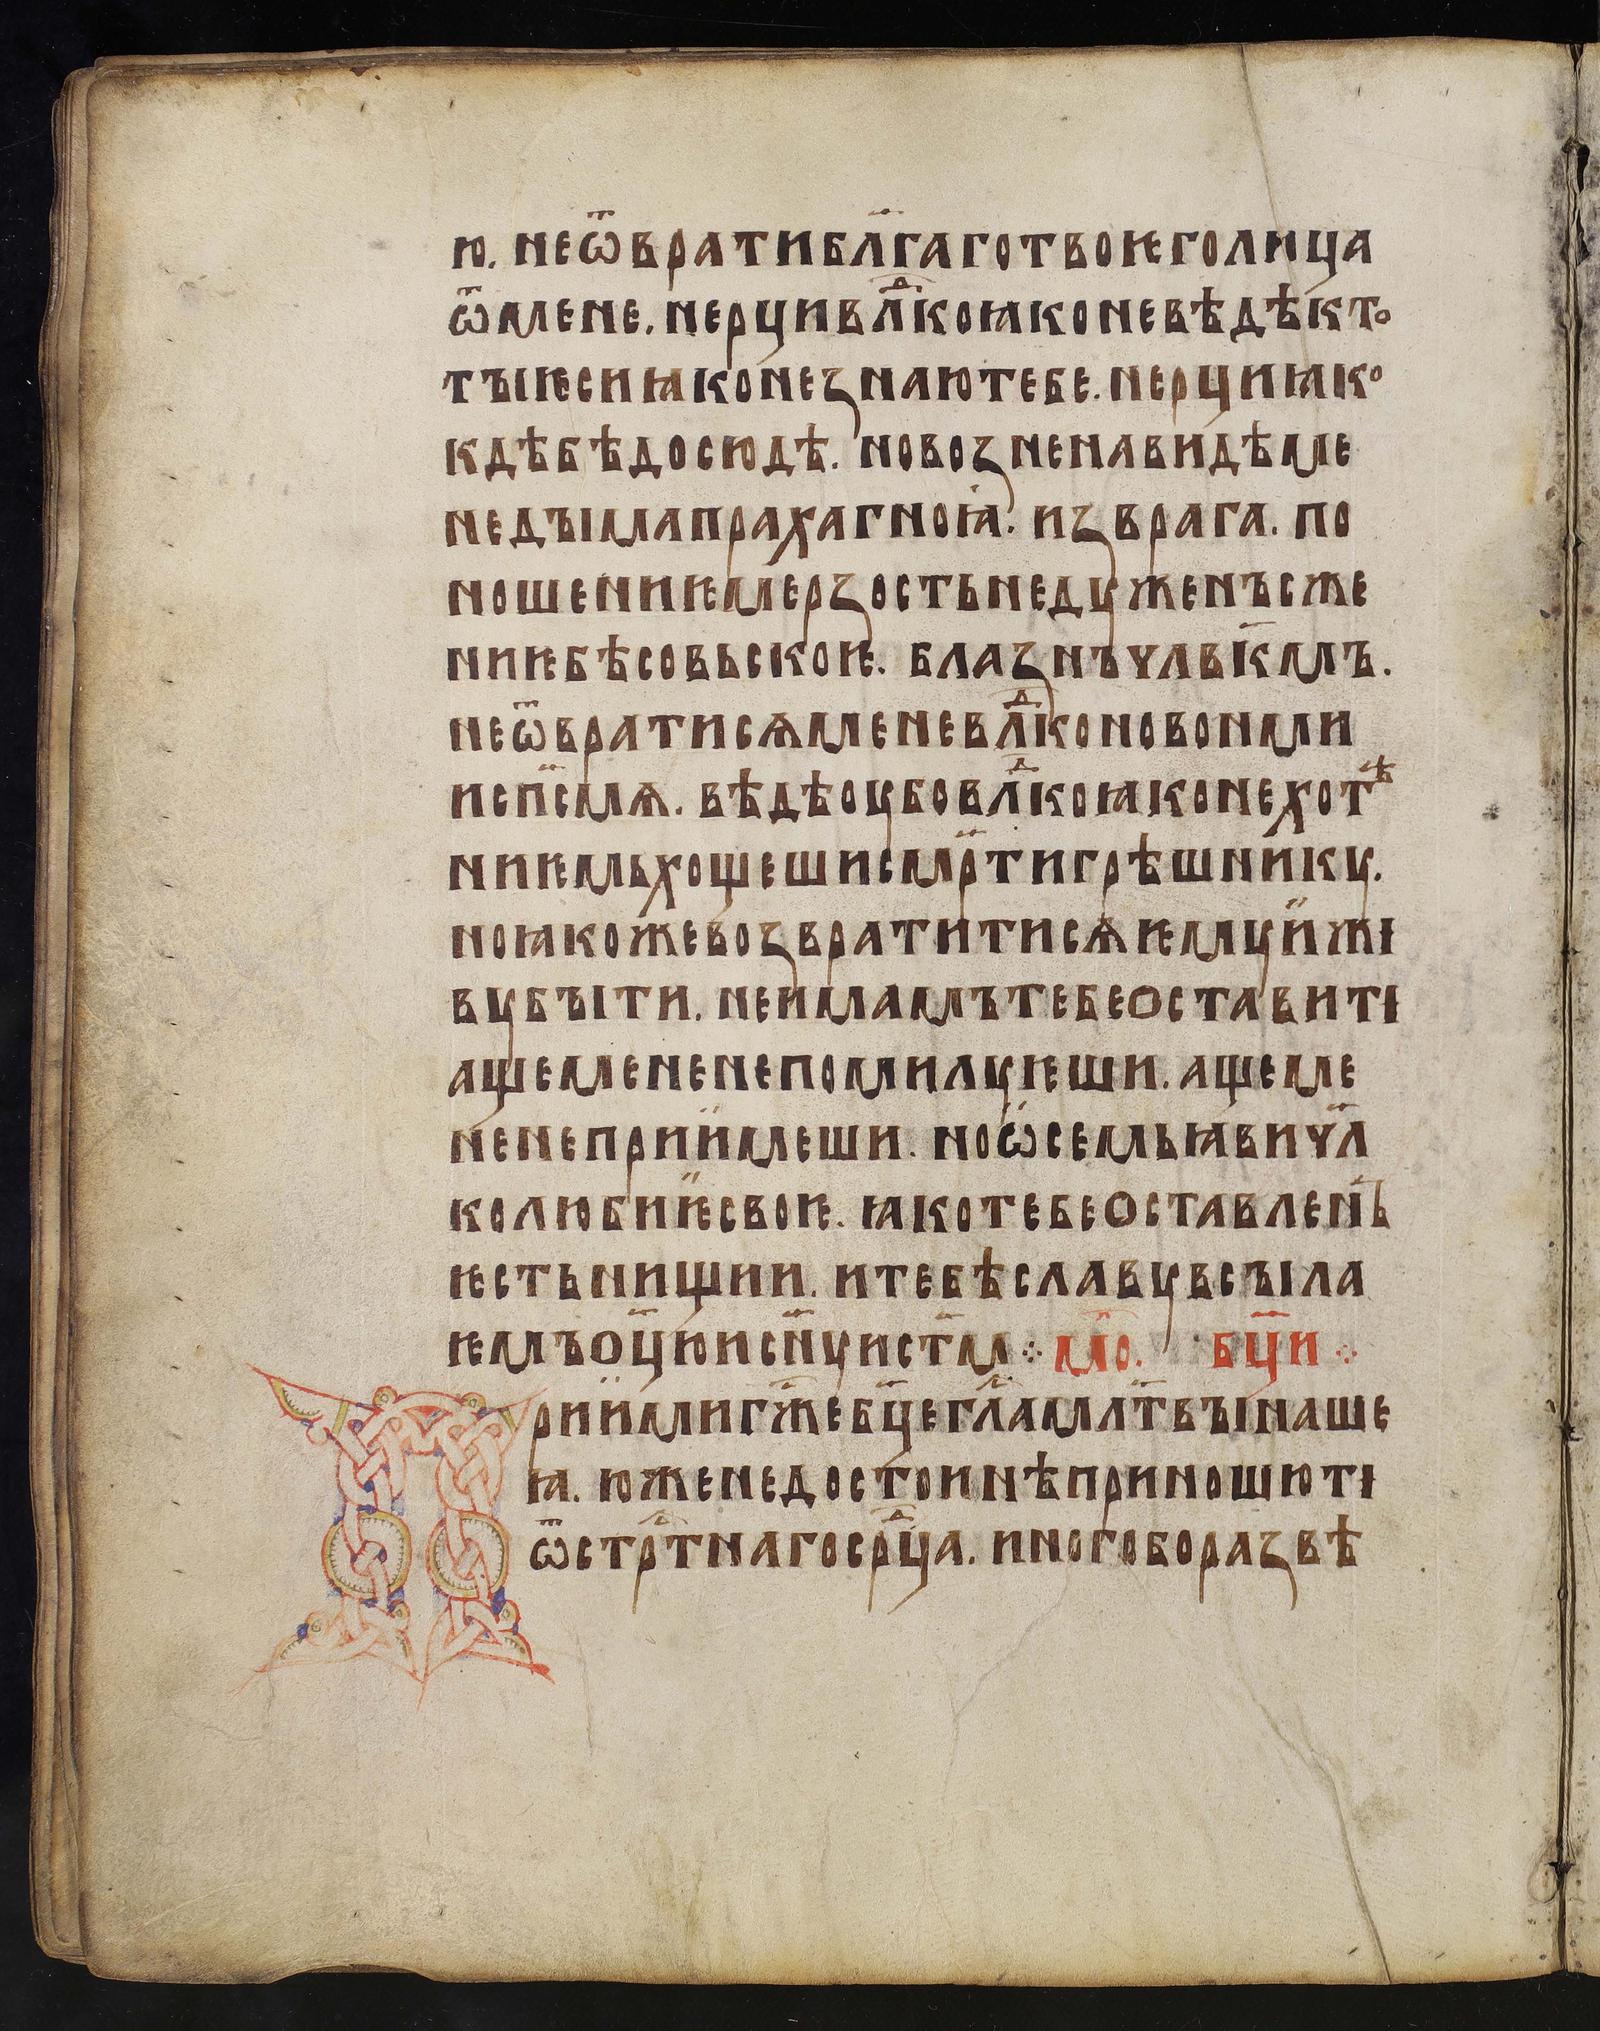 ю. неѿвратибл҃гаготвоѥголица
ѿмене. нерциввлⷣ҃коꙗконевѣдѣкто
тъіѥсиꙗконеꙁнаютебе. нерциꙗко
кдѣбѣдосюдѣ. новоꙁненавидѣме
недъімапрахагноꙗ. иꙁврага. по
ношениѥмерꙁостьнедуженъсже
ниѥбѣсовьскоѥ. блаꙁнъчл҃вкмъ.
неѿвратисѧменевлⷣ҃коновонми
исп҃смѧ. вѣдѣоубовлⷣ҃коꙗконехотѣ
ниѥмьхощешисмр҃тигрѣшнику.
ноꙗкожевоꙁвратитисѧѥмуижі
вубъіти. неимамътебеоставиті
ащеменепомилуѥши. ащеме
ненеприимеши. ноѡсемьꙗвичл҃
колюбиѥсвоѥ. ꙗкотебеоставленъ
ѥстьнищии. итебѣславувсъіла
ѥмъоц҃юисн҃уист҃м ⁘ мⷪ҃о. бц҃и ⁘
Приимигж҃ебц҃егл҃амл҃твъінаше
ꙗ. юженедостоинѣприношюті
ѿстрⷭ҃тнагосрⷣ҃ца. иногобораꙁвѣ